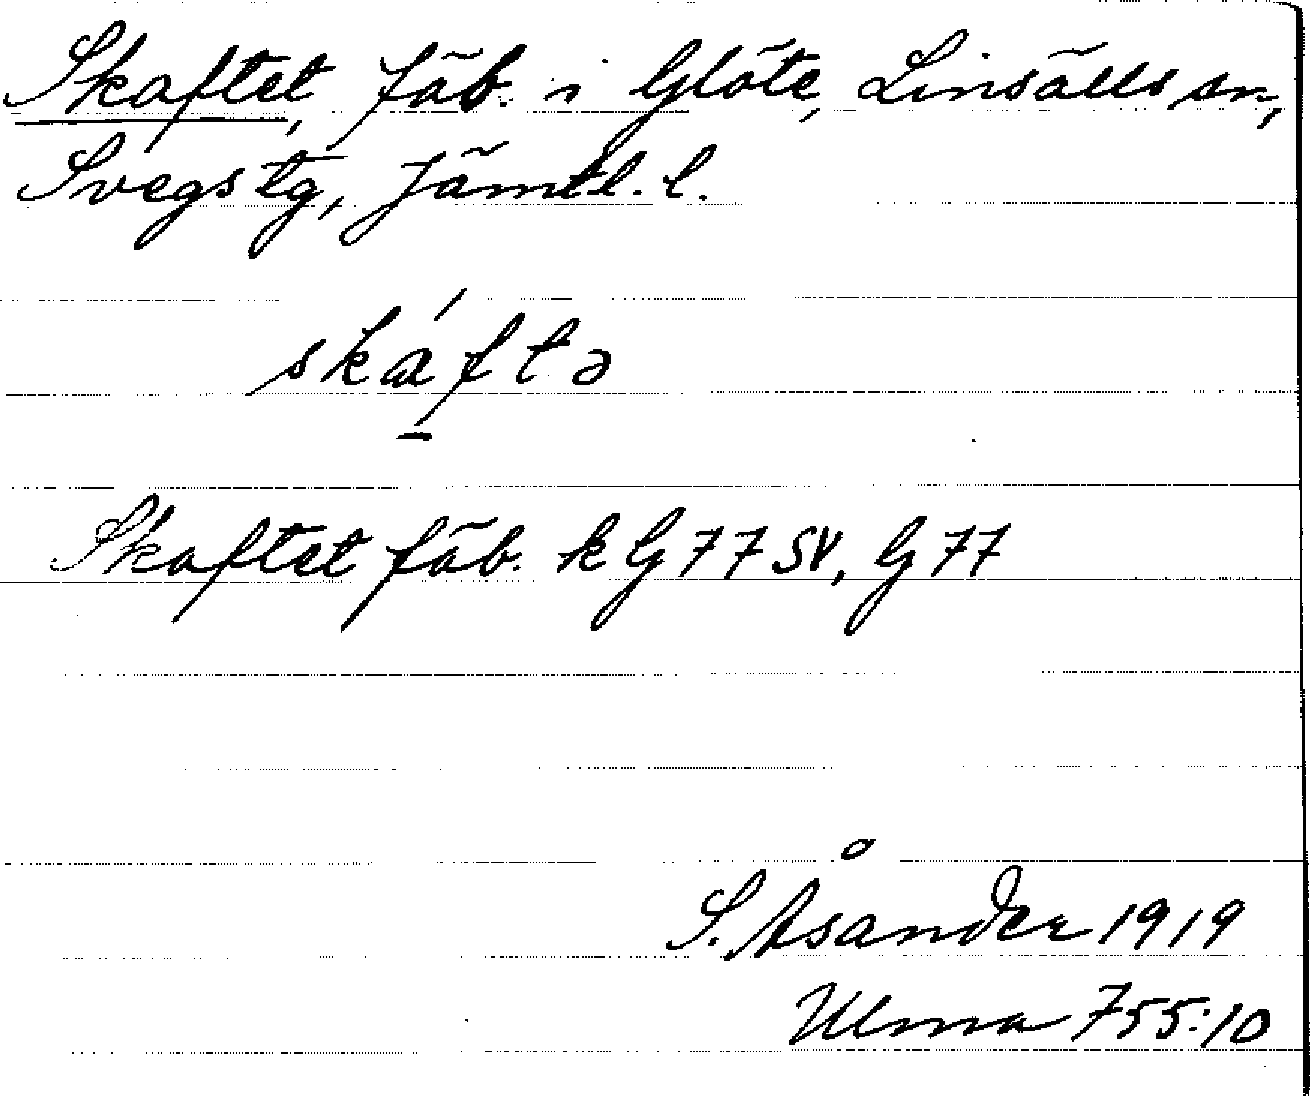 Skaftet, fäb. i Glöte, Linsälls sn,
Svegs tg, Jämtl. l.
skáftə
Skaftet fäb. k G77SV, G77
S. Åsander 1919
Ulma 755:10